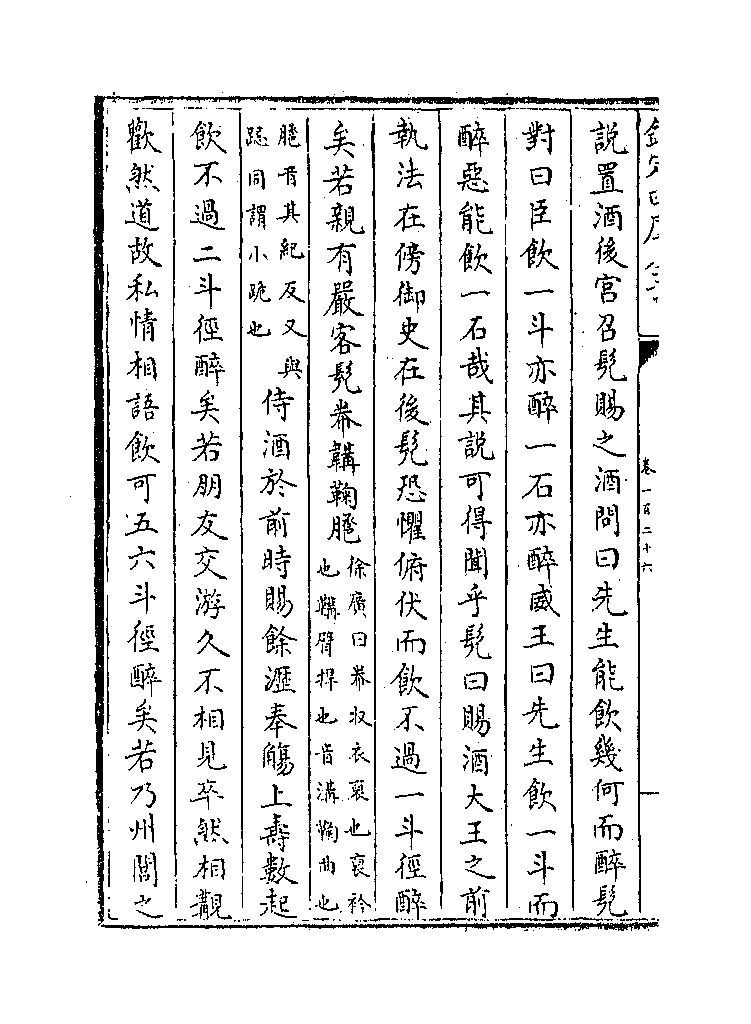 卷一百二十六
說置酒後宮召髡賜之酒問曰先生能飲幾何而醉髡
對曰臣飲一斗亦醉一石亦醉威王曰先生飲一斗而
醉惡能飲一石哉其說可得聞乎髡曰賜酒大王之前
執法在傍御史在後髡恐懼俯伏而飲不過一斗徑醉
矣若親有嚴客髡帣韝鞠䠆徐廣曰帣收衣袖也袖衿
也韝臂捍也音溝鞠曲也
䠆音其紀反又與
跽同謂小跪也侍酒於前時賜餘瀝奉觴上壽數起
飲不過二斗徑醉矣若朋友交游久不相見卒然相覩
歡然道故私情相語飲可五六斗徑醉矣若乃州閭之